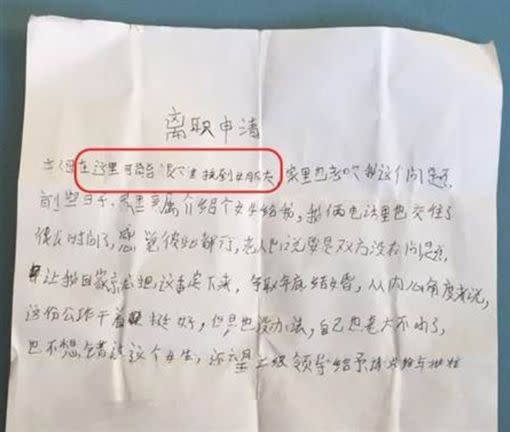 离职申请
本人因在这里可能很难找到女朋友,家里也考虑我这个问题
前些日子,家里亲属介绍个女生给我,我俩电话里也交往了
很长时间了,感觉彼此都行,老人也说要是双方没有问题
让我回家 这事定下来,争取年底结婚,从内心角度来说,
这份工作干着挺好,但是也没办法,自己也老大不小了,
也不想错过这个女生,还望上级领导给予 批准